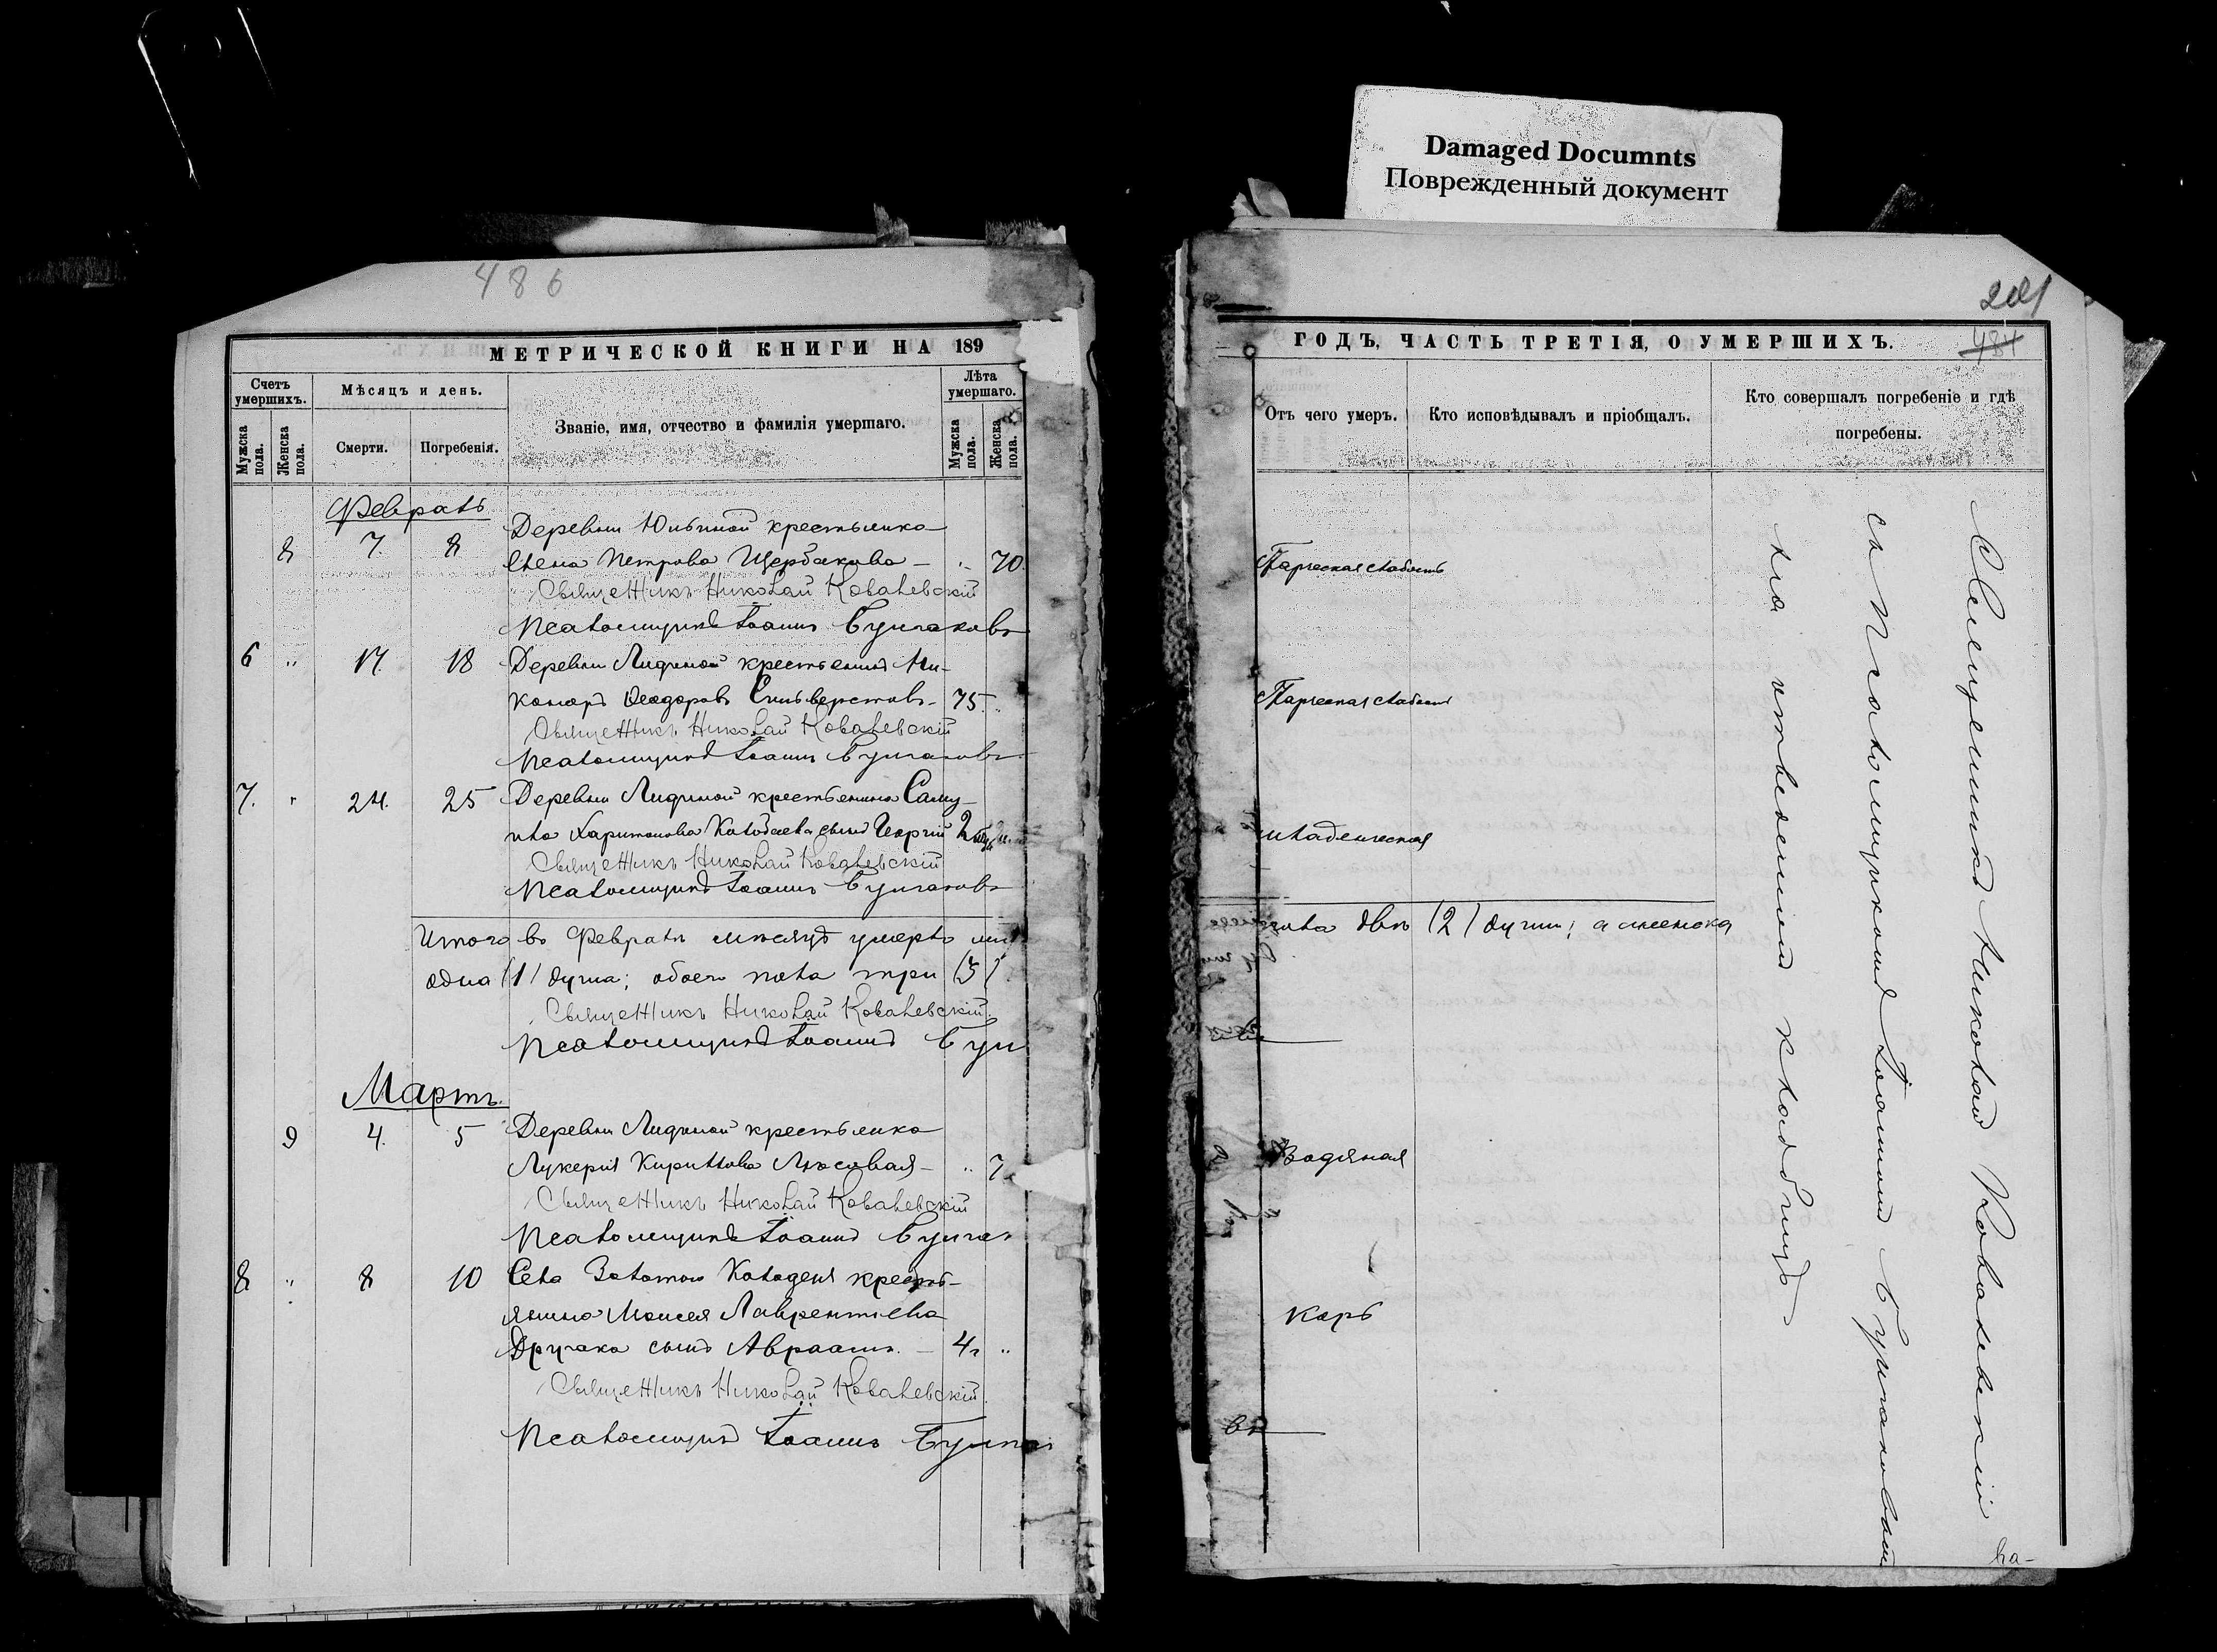 Damaged Documnts
Поврежденный документ
486
МЕТРИЧЕСКОЙ КНИГИ НА 189
Счетъ умершихъ.
Мужска пола.
Женска пола.
Мѣсяцъ и день.
Смерти.
Погребенія.
Званіе, имя, отчество и фамилія умершаго.
Лѣта умершаго.
Мужска пола.
Женска пола.
Февраль
8 7. 8 Деревни Юльиной крестьянка
Елена Петрова Щербакова — " 70.
Священникъ Николай Ковалевскій
Псаломщикъ Іоаннъ Булгаковъ
6 " 17. 18 Деревни Лидиной крестьянинъ Ни-
каноръ Ѳеодоровъ Сильверстовъ. 75. "
Священникъ Николай Ковалевскій
Псаломщикъ Іоаннъ Булгаковъ
7. " 24. 25 Деревни Лидиной крестьянина Саму-
ила Харитонова сынъ Георгій 2
Священникъ Николай Ковалевскій
Псаломщикъ Іоаннъ Булгаковъ
Итого въ Февралѣ мѣсяцѣ умерло
одна (1) душа; обоего пола три (3)
Священникъ Николай Ковалевскій.
Псаломщикъ Іоаннъ Бул
Мартъ.
9 4. 5 Деревни Лидиной крестьянка
Лукерія Кириллова Лясовая — " 7
Священникъ Николай Ковалевскій
Псаломщикъ Іоаннъ Булга
8 " 8 10 Села Золотой Колодезя кресть-
янина Моисея Лаврентіева
Дручака сынъ Авраамъ. — 4 г "
Священникъ Николай Ковалевскій.
Псаломщикъ Іоаннъ Булга
201
484
ГОДЪ, ЧАСТЬ ТРЕТІЯ, О УМЕРШИХЪ.
Отъ чего умеръ.
Кто исповѣдывалъ и пріобщалъ.
Кто совершалъ погребеніе и гдѣ погребены.
Старческая слабость
Старческая слабость
младенческая
пола двѣ (2) души; а женска
Водяная
корь
Священникъ Николай Ковалевскій
съ Псаломщикомъ Іоанномъ Булгаковымъ
на отведенномъ кладбищѣ
ва-